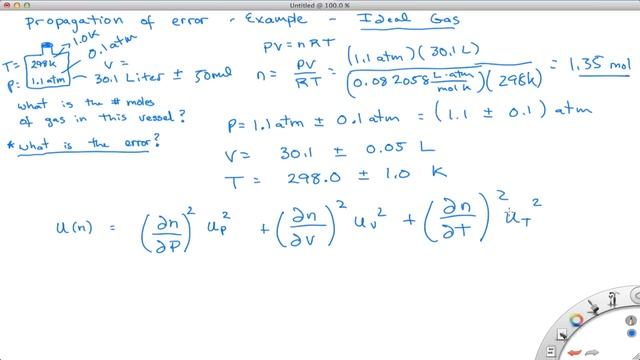 Untitled @ 100.0 %
Propagation of error - Example - Ideal Gas
1.0K
0.1 atm
T= 298k V =
P= 1.1 atm 30.1 Liter ± 50ml
what is the # moles
of gas in this vessel?
* what is the error?
PV = nRT
n = PV/RT = (1.1 atm)(30.1 L) / (0.082058 L·atm/mol K)(298k) = 1.35 mol
P = 1.1 atm ± 0.1 atm = (1.1 ± 0.1) atm
V = 30.1 ± 0.05 L
T = 298.0 ± 1.0 K
u(n) = (∂n/∂P)² u_P² + (∂n/∂V)² u_V² + (∂n/∂T)² u_T²